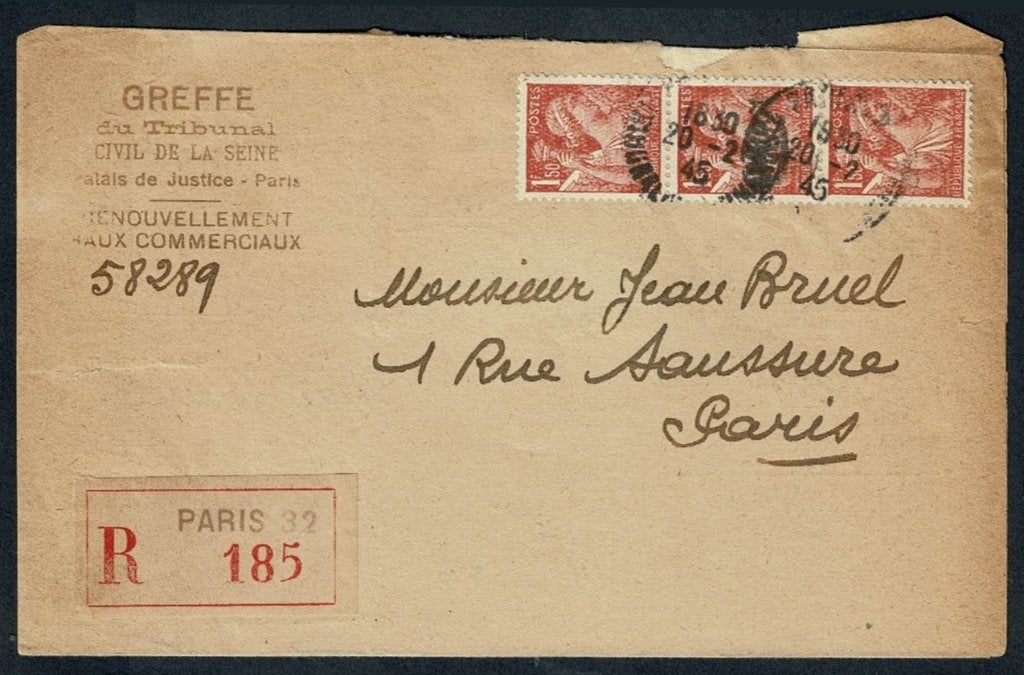 GREFFE
du Tribunal
CIVIL DE LA SEINE
alais de Justice - Paris
ENOUVELLEMENT
AUX COMMERCIAUX
58289
POSTES
1F50
1830
20 -2
45
1830
20 -2
45
RÉPUBLIQUE FRANÇAISE
Monsieur Jean Bruel
1 Rue Saussure
Paris
PARIS 32
R 185